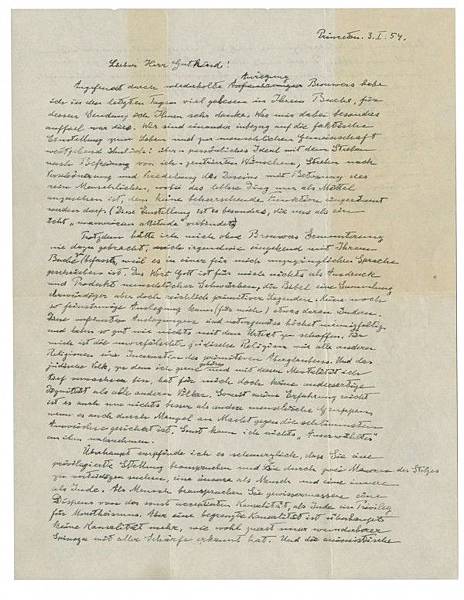 Princeton. 3. I. 54.
Lieber Herr Gutkind!
Angefeuert durch wiederholte Anregung Brouwers habe
ich in den letzten Tagen viel gelesen in Ihrem Buche, für
dessen Sendung ich Ihnen sehr danke. Was mir dabei besonders
auffiel war dies. Wir sind einander inbezug auf die faktische
Einstellung zum Leben und zur menschlichen Gemeinschaft
weitgehend ähnlich: über-persönliches Ideal mit dem Streben
nach Befreiung von ich-zentrierten Wünschen, Streben nach
Verschönerung und Veredelung des Daseins mit Betonung des
rein Menschlichen, wobei das leblose Ding nur als Mittel
anzusehen ist, dem keine beherrschende Funktion eingeräumt
werden darf. (Diese Einstellung ist es besonders, die uns als ein
echt "unamerican attitude" verbindet)
Trotzdem hätte ich mich ohne Brouwers Ermunterung
nie dazu gebracht, mich irgendwie eingehend mit Ihrem
Buche zu befassen, weil es in einer für mich unzugänglichen Sprache
geschrieben ist. Das Wort Gott ist für mich nichts als Ausdruck
und Produkt menschlicher Schwächen, die Bibel eine Sammlung
ehrwürdiger aber doch reichlich primitiver Legenden. Keine noch
so feinsinnige Auslegung kann (für mich) etwas daran ändern.
Diese verfeinerten Auslegungen sind naturgemäss höchst mannigfaltig
und haben so gut wie nichts mit dem Urtext zu schaffen. Für
mich ist die unverfälschte jüdische Religion wie alle anderen
Religionen eine Incarnation des primitiven Aberglaubens. Und das
jüdische Volk, zu dem ich gerne gehöre und mit dessen Mentalität ich
tief verwachsen bin, hat für mich doch keine andersartige
Dignität als alle anderen Völker. Soweit meine Erfahrung reicht
ist es auch um nichts besser als andere menschliche Gruppen,
wenn es auch durch Mangel an Macht gegen die schlimmsten
Auswüchse gesichert ist. Sonst kann ich nichts „Auserwähltes"
an ihm wahrnehmen.
Überhaupt empfinde ich es schmerzlich, dass Sie eine
privilegierte Stellung beanspruchen und sie durch zwei Mauern des Stolzes
zu verteidigen suchen, eine äussere als Mensch und eine innere
als Jude. Als Mensch beanspruchen Sie gewissermassen einen
Dispens von der sonst acceptierten Kausalität, als Jude ein Privileg
für Monotheismus. Aber eine begrenzte Kausalität ist überhaupt
keine Kausalität mehr, wie wohl zuerst unser wunderbarer
Spinoza mit aller Schärfe erkannt hat. Und die animistische